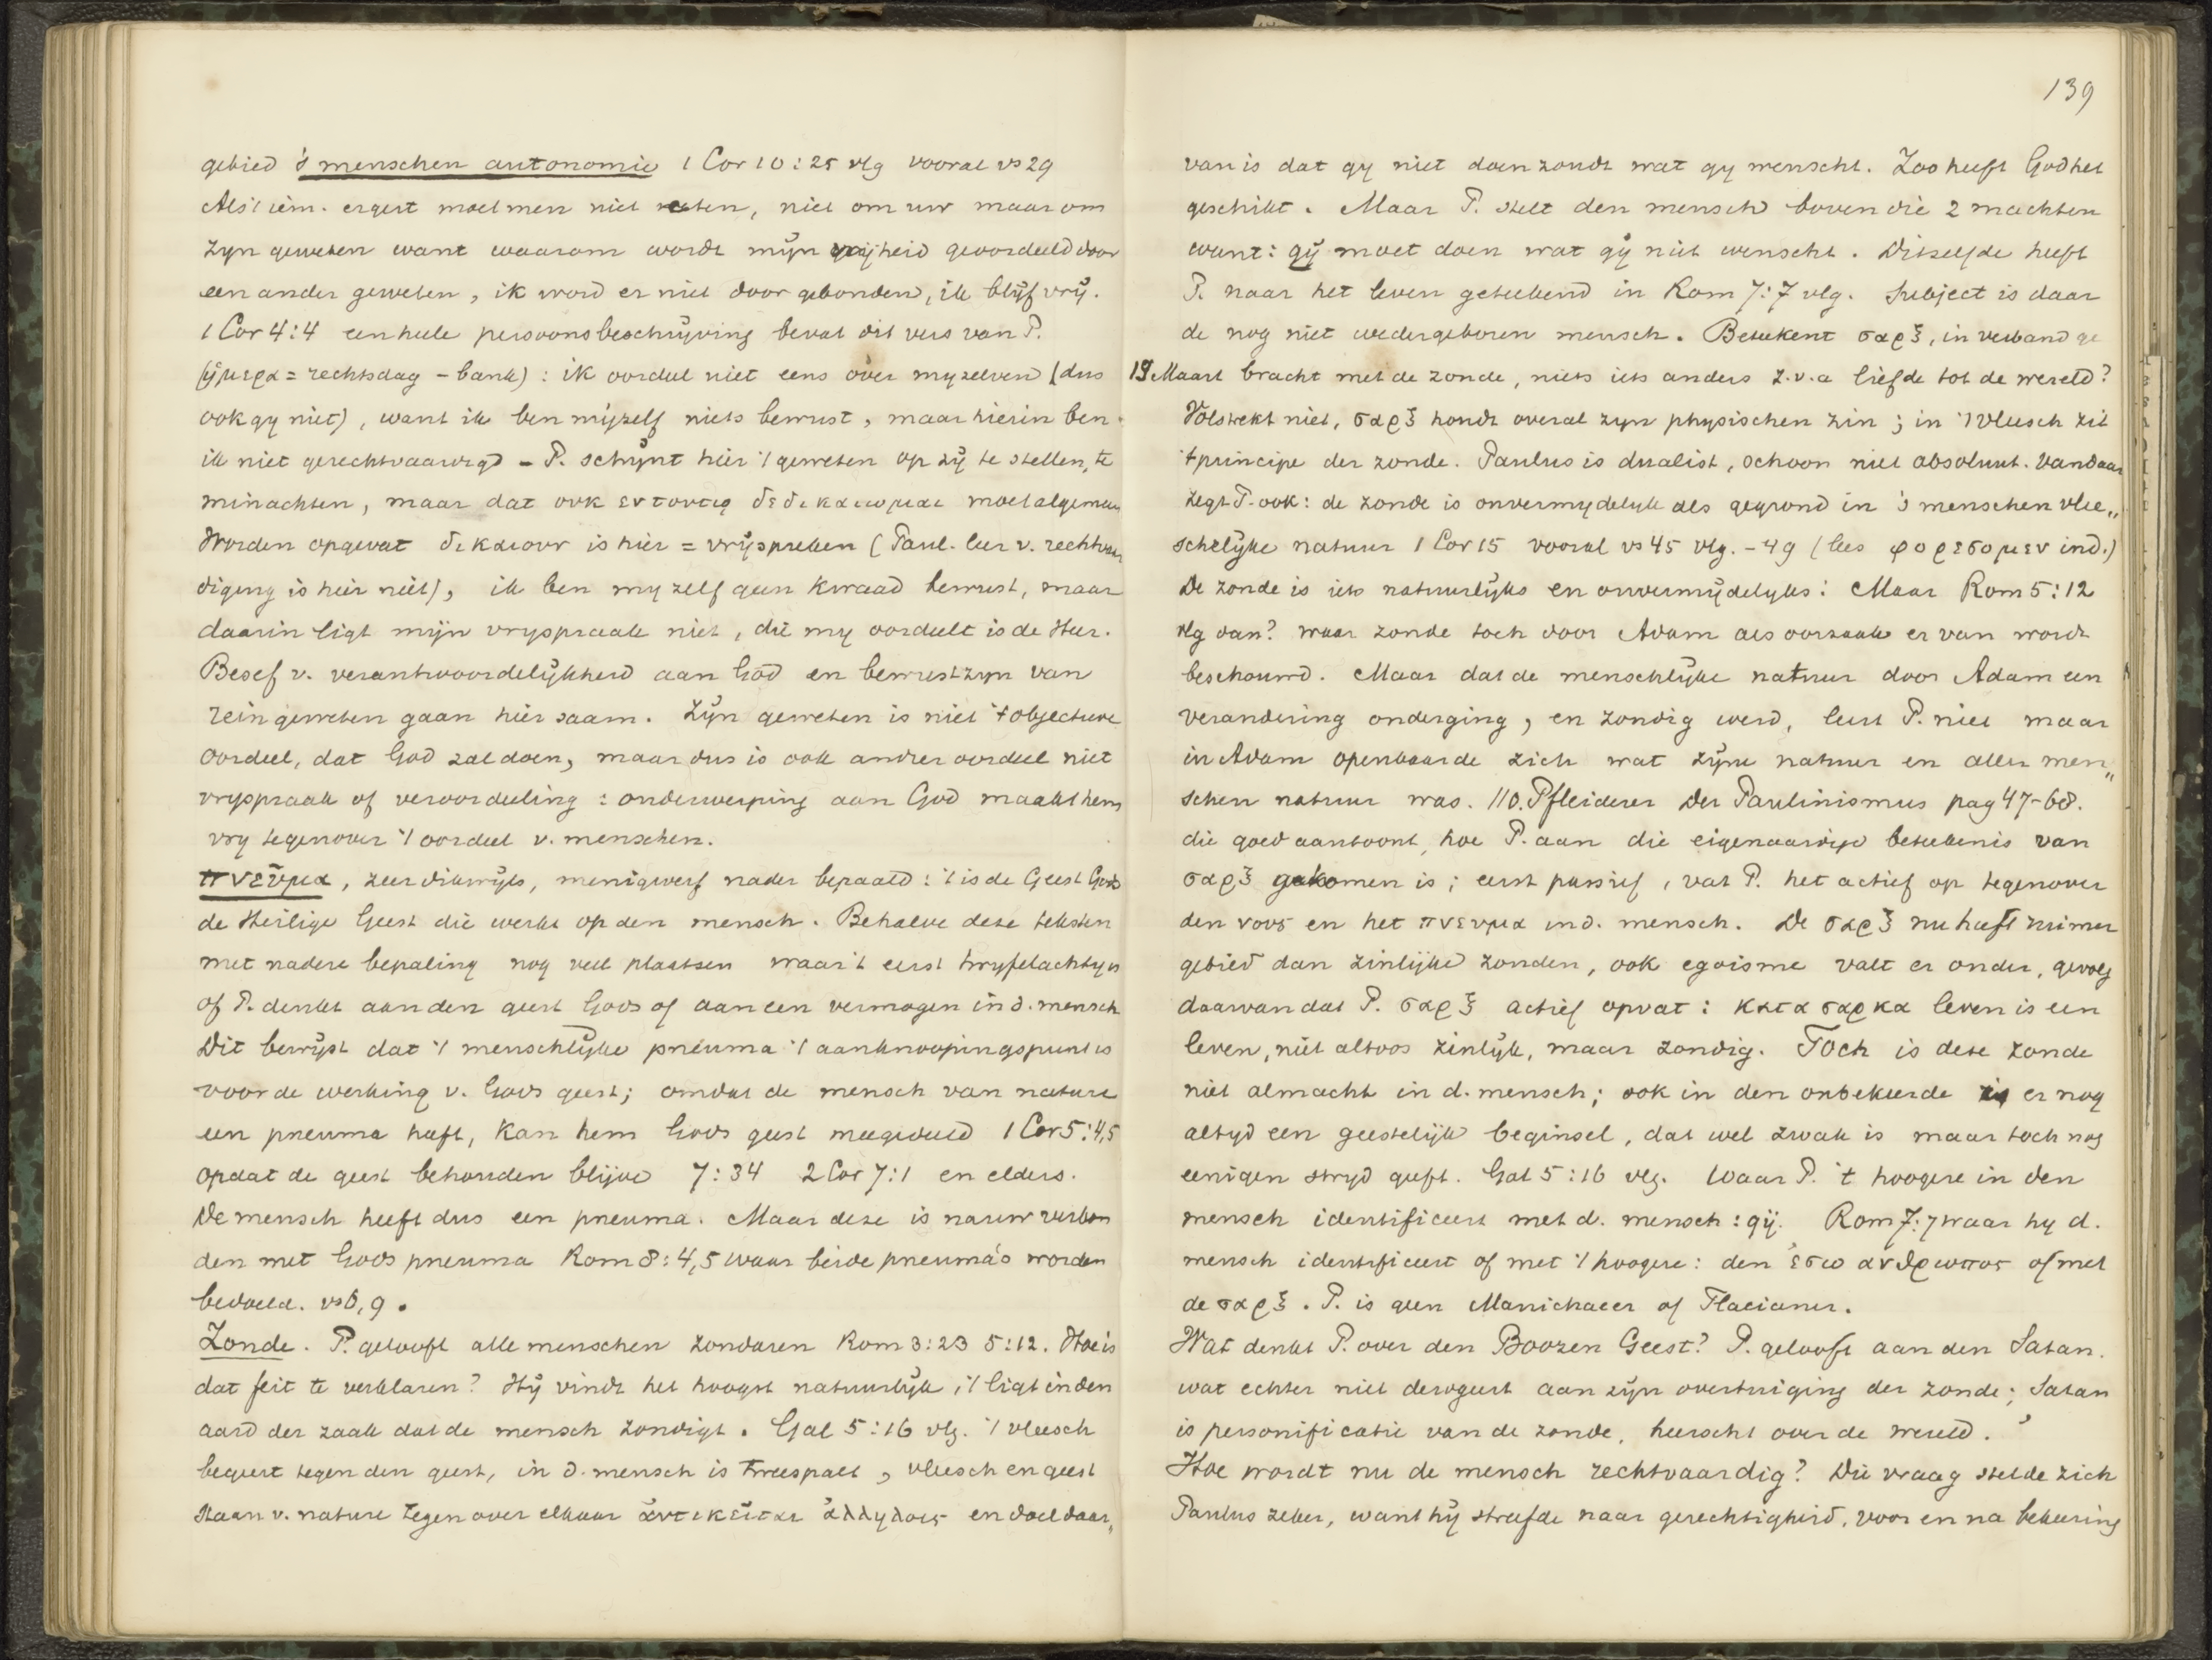 gebied 's menschen autonomie 1 Cor 10:25 vlg vooral vs 29
Als 't iem. ergert moet men niet eten, niet om uw maar om
zyn geweten want waarom wordt mijn vrijheid geoordeeld door
een ander geweten, ik word er niet door gebonden, ik blijf vrij.
1 Cor 4:4 een heele persoonsbeschrijving bevat dit vers van P.
(ἡμερα = rechtsdag - bank) : ik oordeel niet eens over myzelven (dus
ook gy niet), want ik ben mijzelf niets bewust, maar hierin ben
ik niet gerechtvaardigd - P. schijnt hier 't geweten op zij te stellen, te
minachten, maar dat ουκ εν τουτῳ δεδικαιωμαι moet algemeen
Worden opgevat δικαιουν is hier = vrijspreken (Paul. leer v. rechtvaar
diging is hier niet), ik ben my zelf geen kwaad bewust, maar
daarin ligt mijn vryspraak niet, die my oordeelt is de Heer.
Besef v. verantwoordelijkheid aan God en bewustzyn van
rein geweten gaan hier saam. Zijn geweten is niet 't objectieve
oordeel, dat God zal doen, maar dus is ook ander oordeel niet
vryspraak of veroordeeling : onderwerping aan God maakt hem
vry tegenover 't oordeel v. menschen.
πνεῦμα, zeer dikwijls, menigwerf nader bepaald : 't is de Geest Gods
de Heilige Geest die werkt op den mensch. Behalve deze teksten
met nadere bepaling nog veel plaatsen waar 't eerst twyfelachtig is
of P. denkt aan den geest Gods of aan een vermogen in d. mensch
Dit bewijst dat 't menschlijke pneuma 't aanknoopingspunt is
voor de werking v. Gods geest; omdat de mensch van nature
een pneuma heeft, kan hem Gods geest meegedeeld 1 Cor 5:4,5
opdat de geest behouden blijve 7:34 2 Cor 7:1 en elders.
De mensch heeft dus een pneuma. Maar deze is nauw verbon
den met Gods pneuma Rom 8:4,5 waar beide pneuma's worden
bedoeld. vs 6, 9.
Zonde. P. gelooft alle menschen zondaren Rom 3:23 5:12. Hoe is
dat feit te verklaren? Hij vindt het hoogst natuurlijk, 't ligt in den
aard der zaak dat de mensch zondigt. Gal 5:16 vlg. 't vleesch
begeert tegen den geest, in d. mensch is tweespalt, vleesch en geest
staan v. nature tegenover elkaar ἀντικειται ἀλληλοις en doel daar„
139
van is dat gy niet doen zoudt wat gy wenscht. Zoo heeft God het
geschikt. Maar P. stelt den mensch boven die 2 machten
want: gij moet doen wat gij niet wenscht. Ditzelfde heeft
P. naar het leven geteekend in Rom 7:7 vlg. Subject is daar
de nog niet wedergeboren mensch. Beteekent σαρξ, in verband ge
19 Maart bracht met de zonde, niets iets anders z.v.a liefde tot de wereld?
Volstrekt niet, σαρξ houdt overal zyn physischen zin; in 't Vleesch zit
't principe der zonde. Paulus is dualist, schoon niet absoluut. Vandaar
zegt P. ook: de zonde is onvermydelyk als gegrond in 's menschen vlee„
schelijke natuur 1 Cor 15 vooral vs 45 vlg. - 49 (lees φορεσομεν ind.)
De zonde is iets natuurlijks en onvermijdelyks: Maar Rom 5:12
vlg dan? waar zonde toch door Adam als oorzaak er van wordt
beschouwd. Maar dat de menschlijke natuur door Adam een
verandering onderging, en zondig werd, leert P. niet maar
in Adam openbaarde zich wat zijne natuur en aller men„
schen natuur was. // O. Pfleiderer Der Paulinismus pag 47-68.
die goed aantoont, hoe P. aan die eigenaardige beteekenis van
σαρξ gekomen is; eerst passief, vat P. het actief op tegenover
den νους en het πνευμα in d. mensch. De σαρξ nu heeft ruimer
gebied dan zinlijke zonden, ook egoisme valt er onder, gevolg
daarvan dat P. σαρξ actief opvat: κατα σαρκα leven is een
leven, niet altoos zinlijk, maar zondig. Toch is deze zonde
niet almacht in d. mensch; ook in den onbekeerde is er nog
altyd een geestelijk beginsel, dat wel zwak is maar toch nog
eenigen stryd geeft. Gal 5:16 vlg. Waar P. 't hoogere in den
mensch identificeert met d. mensch: gij. Rom 7:7 waar hy d.
mensch identificeert of met 't hoogere: den ἐσω ανθρωπος of met
de σαρξ. P. is geen Manichaeer of Flacianer.
Wat denkt P. over den Boozen Geest? P. gelooft aan den Satan.
wat echter niet derogeert aan zijn overtuiging der zonde; Satan
is personificatie van de zonde, heerscht over de wereld.
Hoe wordt nu de mensch rechtvaardig? Die vraag stelde zich
Paulus zeker, want hij streefde naar gerechtigheid, voor en na bekeering